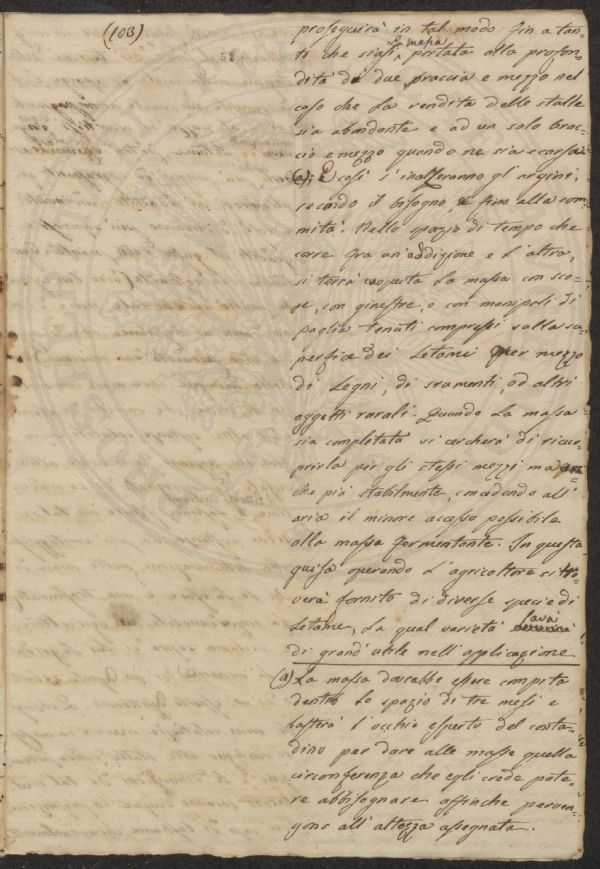 (103)
58
proseguirà in tal modo fin a tan-
ti che siasi la massa portata alla profon-
dità di due braccia e mezzo nel
caso che la rendita delle stalle
sia abondante e ad un solo brac-
cio e mezzo quando ne sia scarsa
(a); E così s'inalzeranno gl'argini,
secondo il bisogno e fino alla som-
mità. Nello spazio di tempo che
corre fra un'addizione e l'altra,
si terrà coperta la massa con sco-
pe, con ginestre, o con manipoli di
paglia tenuti compressi sulla su-
perfice dei letami per mezzo
di legni, di sramenti, od altri
oggetti rurali. Quando la massa
sia completata si cercherà di ricuo-
prirla per gli stessi mezzi ma an-
che più stabilmente, concedendo all'
aria il minore accesso possibile
alla massa fermentante. In questa
guisa operando l'agricoltore si tro-
verà fornito di diverse specie di
letame, la qual varietà sarà
di grand'utile nell'applicazione
(a) La massa dovrebbe essere compita
dentro lo spazio di tre mesi e
basterà l'occhio esperto del conta-
dino per dare alle masse quella
circonferenza che egli crede pote-
re abbisognare affinche perven-
gono all'altezza assegnata.